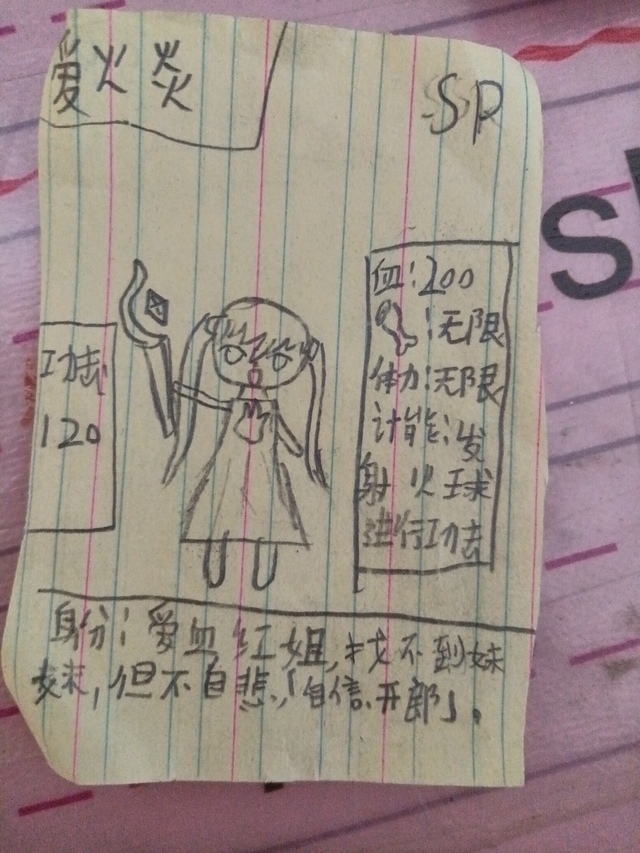 爱火焱
SP
功去
120
血:200
:无限
体力:无限
计能:发
射火球
进行功去
身份:爱血红姐,找不到妹
妹,但不自悲,「自信、开郎」。
S